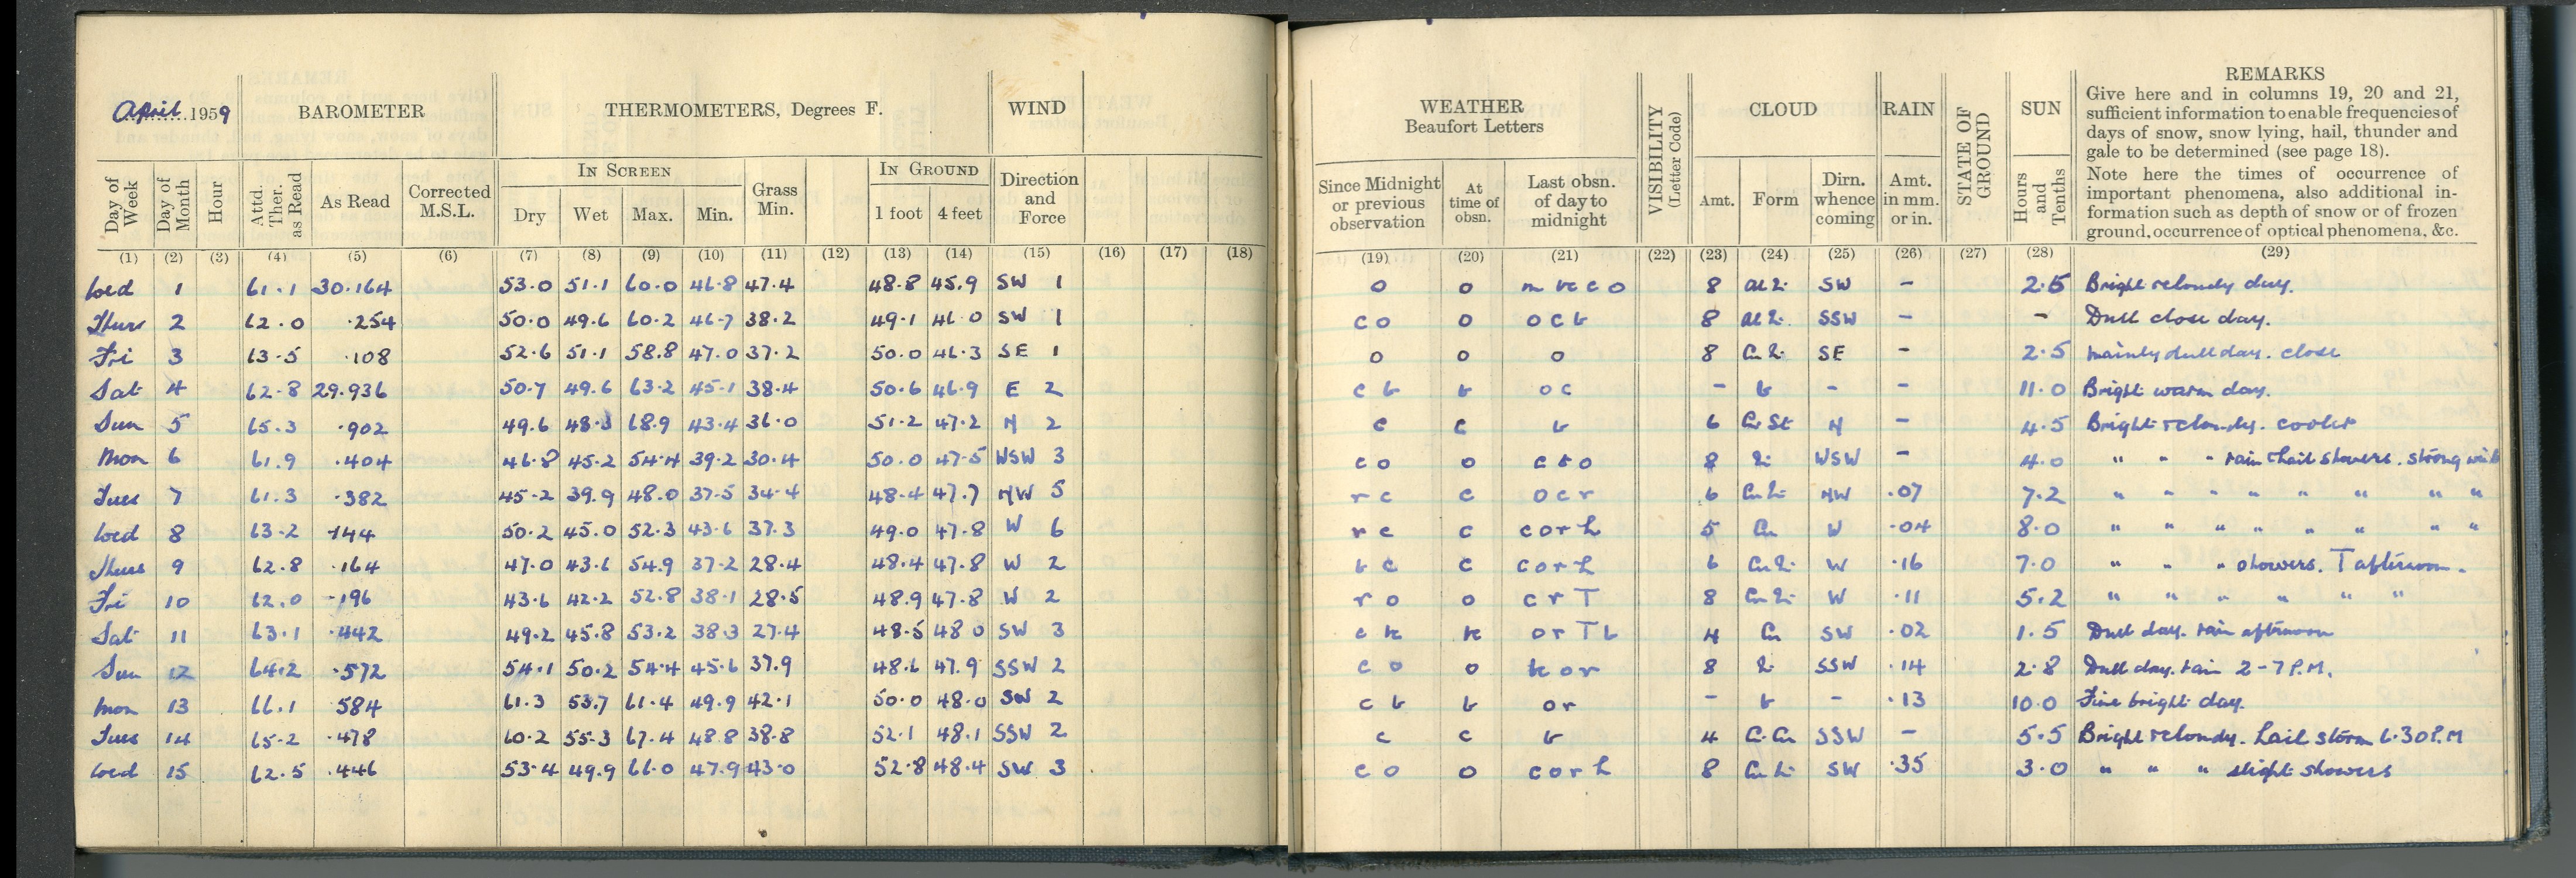 April 1959
BAROMETER
THERMOMETERS, Degrees F.
WIND
Day of Week
Day of Month
Hour
Attd. Ther. as Read
As Read
Corrected M.S.L.
IN SCREEN
Dry Wet Max. Min.
Grass Min.
IN GROUND
1 foot 4 feet
Direction and Force
(1) (2) (3) (4) (5) (6) (7) (8) (9) (10) (11) (12) (13) (14) (15) (16) (17) (18)
Wed 1 61.1 30.164 53.0 51.1 60.0 46.8 47.4 48.8 45.9 SW 1
Thurs 2 62.0 .254 50.0 49.6 60.2 46.7 38.2 49.1 46.0 SW 1
Fri 3 63.5 .108 52.6 51.1 58.8 47.0 37.2 50.0 46.3 SE 1
Sat 4 62.8 29.936 50.7 49.6 63.2 45.1 38.4 50.6 46.9 E 2
Sun 5 65.3 .902 49.6 48.3 68.9 43.4 36.0 51.2 47.2 N 2
Mon 6 61.9 .404 46.8 45.2 54.4 39.2 30.4 50.0 47.5 WSW 3
Tues 7 61.3 .382 45.2 39.9 48.0 37.5 34.4 48.4 47.7 NW 5
Wed 8 63.2 .144 50.2 45.0 52.3 43.6 37.3 49.0 47.8 W 6
Thurs 9 62.8 .164 47.0 43.6 54.9 37.2 28.4 48.4 47.8 W 2
Fri 10 62.0 .196 43.6 42.2 52.8 38.1 28.5 48.9 47.8 W 2
Sat 11 63.1 .442 49.2 45.8 53.2 38.3 27.4 48.5 48.0 SW 3
Sun 12 64.2 .572 54.1 50.2 54.4 45.6 37.9 48.6 47.9 SSW 2
Mon 13 66.1 584 61.3 53.7 61.4 49.9 42.1 50.0 48.0 SW 2
Tues 14 65.2 .478 60.2 55.3 67.4 48.8 38.8 52.1 48.1 SSW 2
Wed 15 62.5 .446 53.4 49.9 66.0 47.9 43.0 52.8 48.4 SW 3
WEATHER
Beaufort Letters
Since Midnight or previous observation
At time of obsn.
Last obsn. of day to midnight
VISIBILITY (Letter Code)
CLOUD
Amt. Form
Dirn. whence coming
RAIN
Amt. in mm. or in.
STATE OF GROUND
SUN
Hours and Tenths
REMARKS
Give here and in columns 19, 20 and 21,
sufficient information to enable frequencies of
days of snow, snow lying, hail, thunder and
gale to be determined (see page 18).
Note here the times of occurrence of
important phenomena, also additional in-
formation such as depth of snow or of frozen
ground, occurrence of optical phenomena, &c.
(19) (20) (21) (22) (23) (24) (25) (26) (27) (28) (29)
o o 8 SW - 2.5 Bright & cloudy day.
co o ocb 8 SSW - - Dull close day.
o o o 8 SE - 2.5 Mainly dull day. close
cb b oc - b - - 11.0 Bright warm day.
c c b 6 Cu St N - 4.5 Bright & cloudy. cooler
co o 8 WSW - 4.0 " " " rain & hail showers. strong wind
rc c ocr 6 NW .07 7.2 " " " " " " " "
rc c corh 5 Cu W .04 8.0 " " " " " " " "
bc c corh 6 W .16 7.0 " " " showers. T afternoon.
ro o crT 8 W .11 5.2 " " " " " "
orTb 4 Cu SW .02 1.5 Dull day. rain afternoon
co o 8 SSW .14 2.8 Dull day. rain 2-7 P.M.
cb b or - b - .13 10.0 Fine bright day.
c c b 4 SSW - 5.5 Bright & cloudy. Hail storm 6.30 P.M
co o corh 8 SW .35 3.0 " " " slight showers